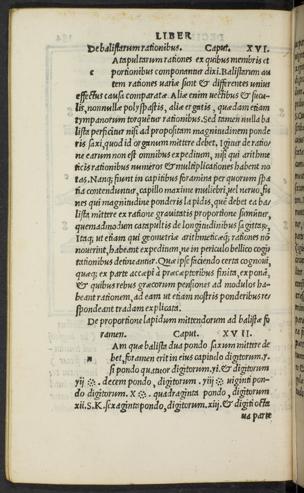 LIBER
De balistarum rationibus. Caput. XVI.
Atapultarum rationes ex quibus membris et
c portionibus componantur dixi. Balistarum au
tem rationes variæ sunt & differentes unius
effectus causa comparatæ. Aliæ enim vectibus & sucu-
lis, nonnullæ polyspastis, aliæ ergatis, quædam etiam
tympanorum torquentur rationibus. Sed tamen nulla ba
lista perficitur nisi ad propositam magnitudinem ponde
ris saxi, quod id organum mittere debet. Igitur de ratio
ne earum non est omnibus expeditum, nisi qui arithme
ticis rationibus numeros & multiplicationes habent no
tas. Nanq; fiunt in capitibus foramina per quorum spa
tia contenduntur, capillo maxime muliebri, vel nervo, fu
nes qui magnitudine ponderis lapidis, quē debet ea ba
lista mittere ex ratione gravitatis proportione sumūtur,
quemadmodum catapultis de longitudinibus sagittaȝ.
Itaq; ut etiam qui geometriæ arithmeticæq; rationes nō
noverint, habeant expeditum, ne in periculo bellico cogi
tationibus detineantur. Quæ ipse faciendo certa cognovi,
quæq; ex parte accœpi a præceptoribus finita, exponā,
& quibus rebus græcorum pensiones ad modulos ha-
beant rationem, ad eam ut etiam nostris ponderibus re
spondeant tradam explicata.
De proportione lapidum mittendorum ad balistæ fo
ramen. Caput. XVII.
Am quæ balista dua pondo saxum mittere de
n bet, foramen erit in eius capitulo digitorum. v.
si pondo quatuor digitorum. vi. & digitorum
decem pondo, digitorum uiginti pon-
do digitorum. X quadraginta pondo, digitorum
xii. S. K. sexaginta pondo, digitorum. xiij. & digiti octa
va parte